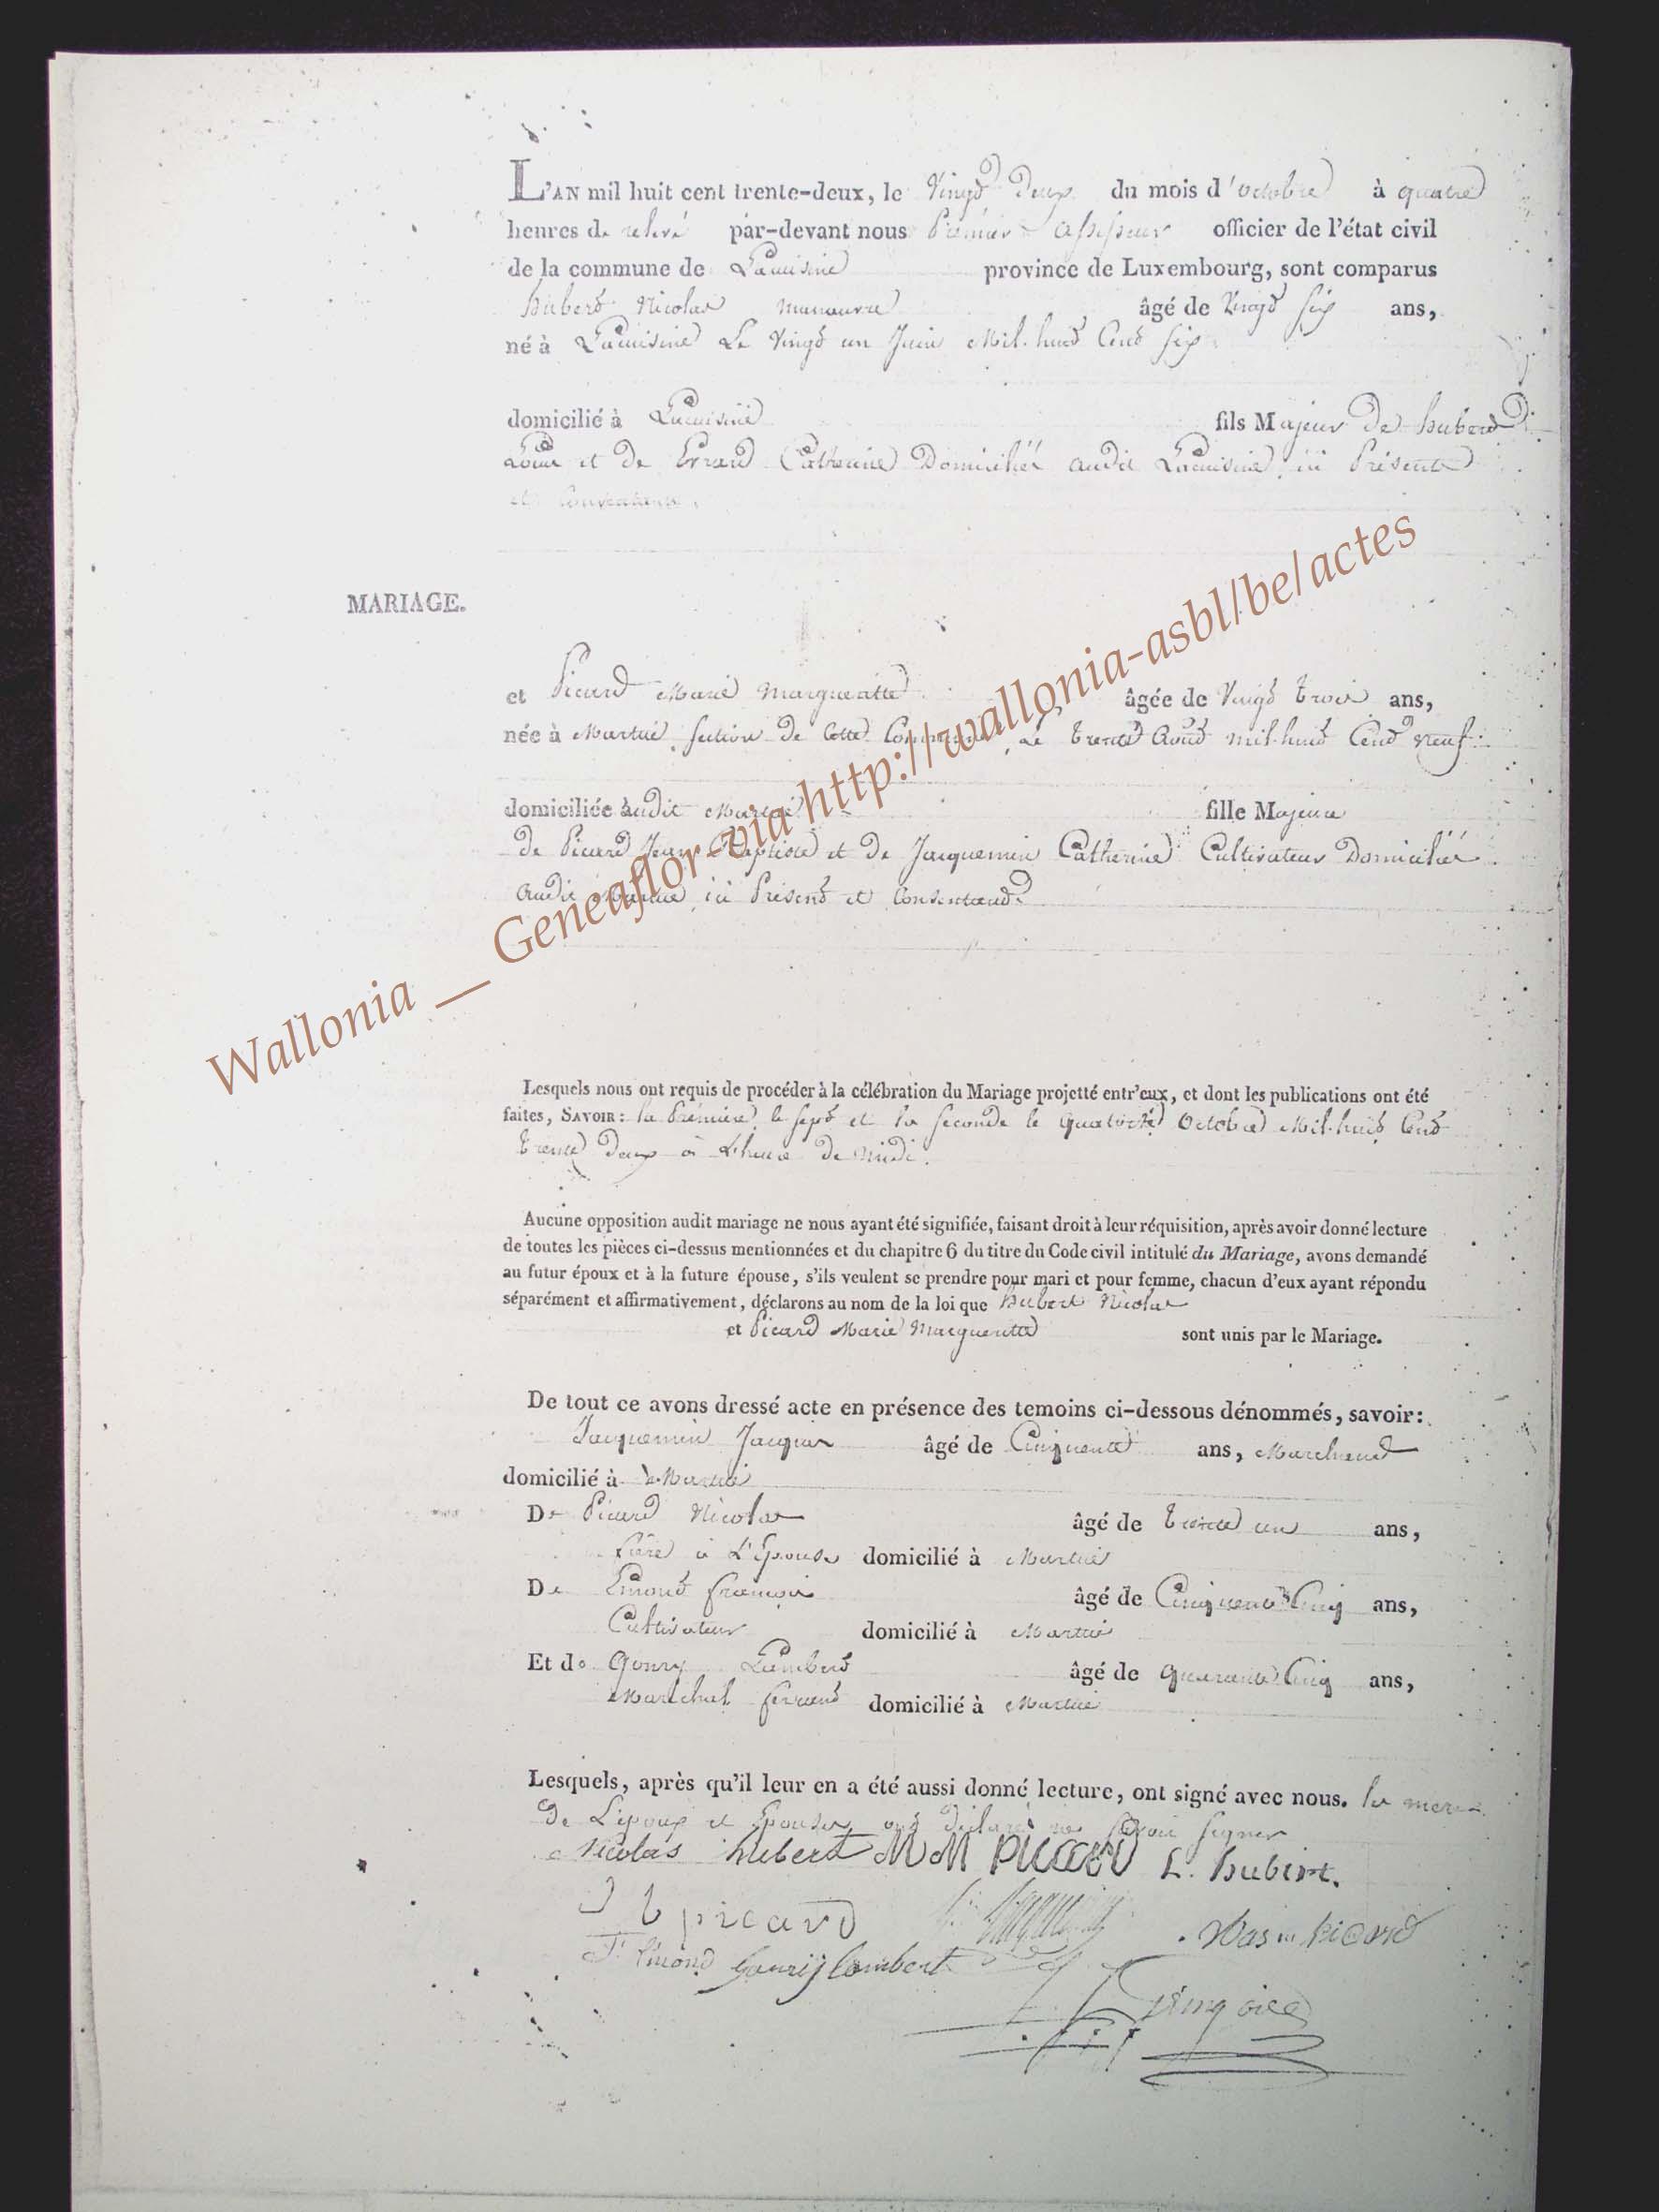 L'AN mil huit cent trente-deux, le Vingt Deux du mois d'octobre à quatre
heures de relevé par-devant nous Premier Assesseur officier de l'état civil
de la commune de Lacuisine province de Luxembourg, sont comparus
hubert Nicolas manœuvre âgé de Vingt six ans,
né à Lacuisine Le Vingt un Juin Mil-huit Cent six
domicilié à Lacuisine fils Majeur De hubert
Louis et de Errard Catherine Domiciliés audit Lacuisine ici Présents
et Consentans.
MARIAGE.
et Picard Marie Margueritte âgée de Vingt trois ans,
née à Martué section de Cette Commune Le trente Août mil-huit Cent neuf
domiciliée audit Martué fille Majeure
de Picard Jean Baptiste et de Jacquemin Catherine Cultivateurs Domiciliés
audit Martué ici Présent et Consentant
Lesquels nous ont requis de procéder à la célébration du Mariage projetté entr'eux, et dont les publications ont été
faites, SAVOIR: la Première le sept et la seconde le quatorze Octobre Mil-huit Cent
trente Deux à L'heure de midi.
Aucune opposition audit mariage ne nous ayant été signifiée, faisant droit à leur réquisition, après avoir donné lecture
de toutes les pièces ci-dessus mentionnées et du chapitre 6 du titre du Code civil intitulé du Mariage, avons demandé
au futur époux et à la future épouse, s'ils veulent se prendre pour mari et pour femme, chacun d'eux ayant répondu
séparément et affirmativement, déclarons au nom de la loi que hubert Nicolas
et Picard Marie Margueritte sont unis par le Mariage.
De tout ce avons dressé acte en présence des temoins ci-dessous dénommés, savoir:
Jacquemin Jacques âgé de Cinquante ans, Marchand
domicilié à Martué
De Picard Nicolas âgé de trente un ans,
frère à L'Epouse domicilié à Martué
De Emond françois âgé de Cinquante Cinq ans,
Cultivateur domicilié à Martué
Et de Goury Lambert âgé de quarante Cinq ans,
Maréchal ferrant domicilié à Martué
Lesquels, après qu'il leur en a été aussi donné lecture, ont signé avec nous. les meres
De L'époux et Epouse ont déclaré ne savoir signer
Nicolas hubert M M PICARD L. hubert.
J B picard
picard
F. Emond Gourij lambert
Wallonia __ Geneaflor via http://wallonia-asbl/be/actes